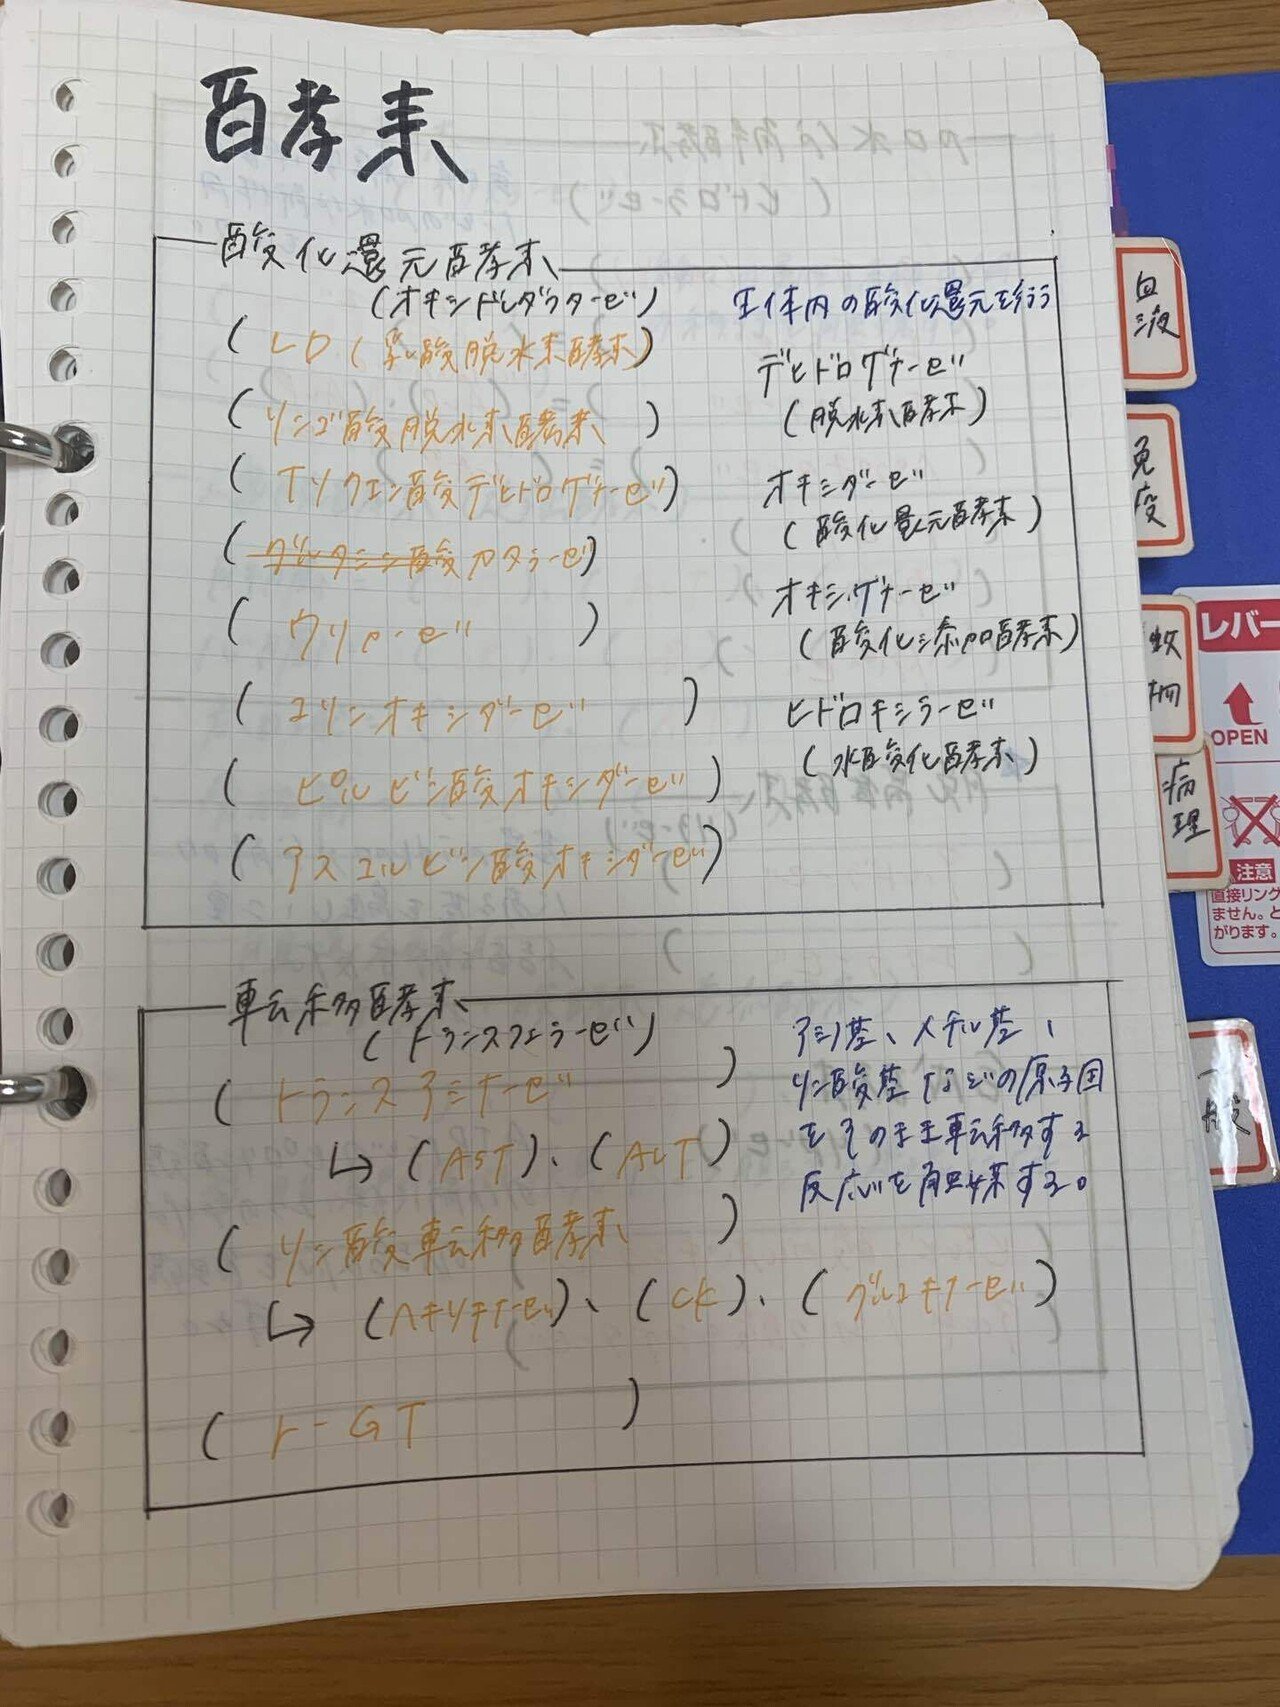 酵素
酸化還元酵素
(オキシドレダクターゼ)
(LD(乳酸脱水素酵素)
(リンゴ酸脱水素酵素)
(イソクエン酸デヒドロゲナーゼ)
(グルタミン酸カタラーゼ)
(ウリカーゼ)
(コリンオキシダーゼ)
(ピルビン酸オキシダーゼ)
(アスコルビン酸オキシダーゼ)
生体内の酸化還元を行う
デヒドロゲナーゼ
(脱水素酵素)
オキシダーゼ
(酸化還元酵素)
オキシゲナーゼ
(酸化添加酵素)
ヒドロキシラーゼ
(水酸化酵素)
転移酵素
(トランスフェラーゼ)
(トランスアミナーゼ)
↳(AST)、(ALT)
(リン酸転移酵素)
↳(ヘキソキナーゼ)、(CK)、(グルコキナーゼ)
(γ-GT)
アミノ基、メチル基、
リン酸基などの原子団
をそのまま転移する
反応を触媒する。
血液
免疫
病理
一般
レバー
OPEN
注意
直接リング
ません。と
がります。